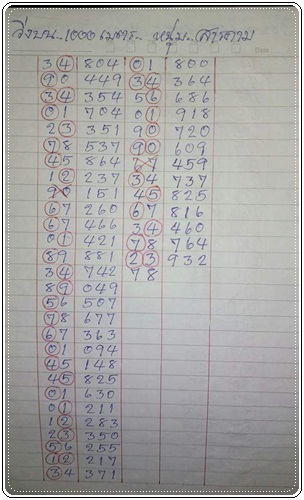 วิ่งบน..1000 เมตร.. หนุ่ม..สารคาม
34 804 01 800
90 449 34 364
34 354 56 686
01 704 01 918
23 351 90 720
78 537 90 609
45 864 67 459
12 237 34 737
90 151 45 825
67 260 67 816
67 466 34 460
01 421 78 764
89 881 23 932
34 742 78
89 049
56 507
78 677
67 363
01 094
45 148
45 825
01 630
01 211
12 283
23 350
56 255
12 217
34 371